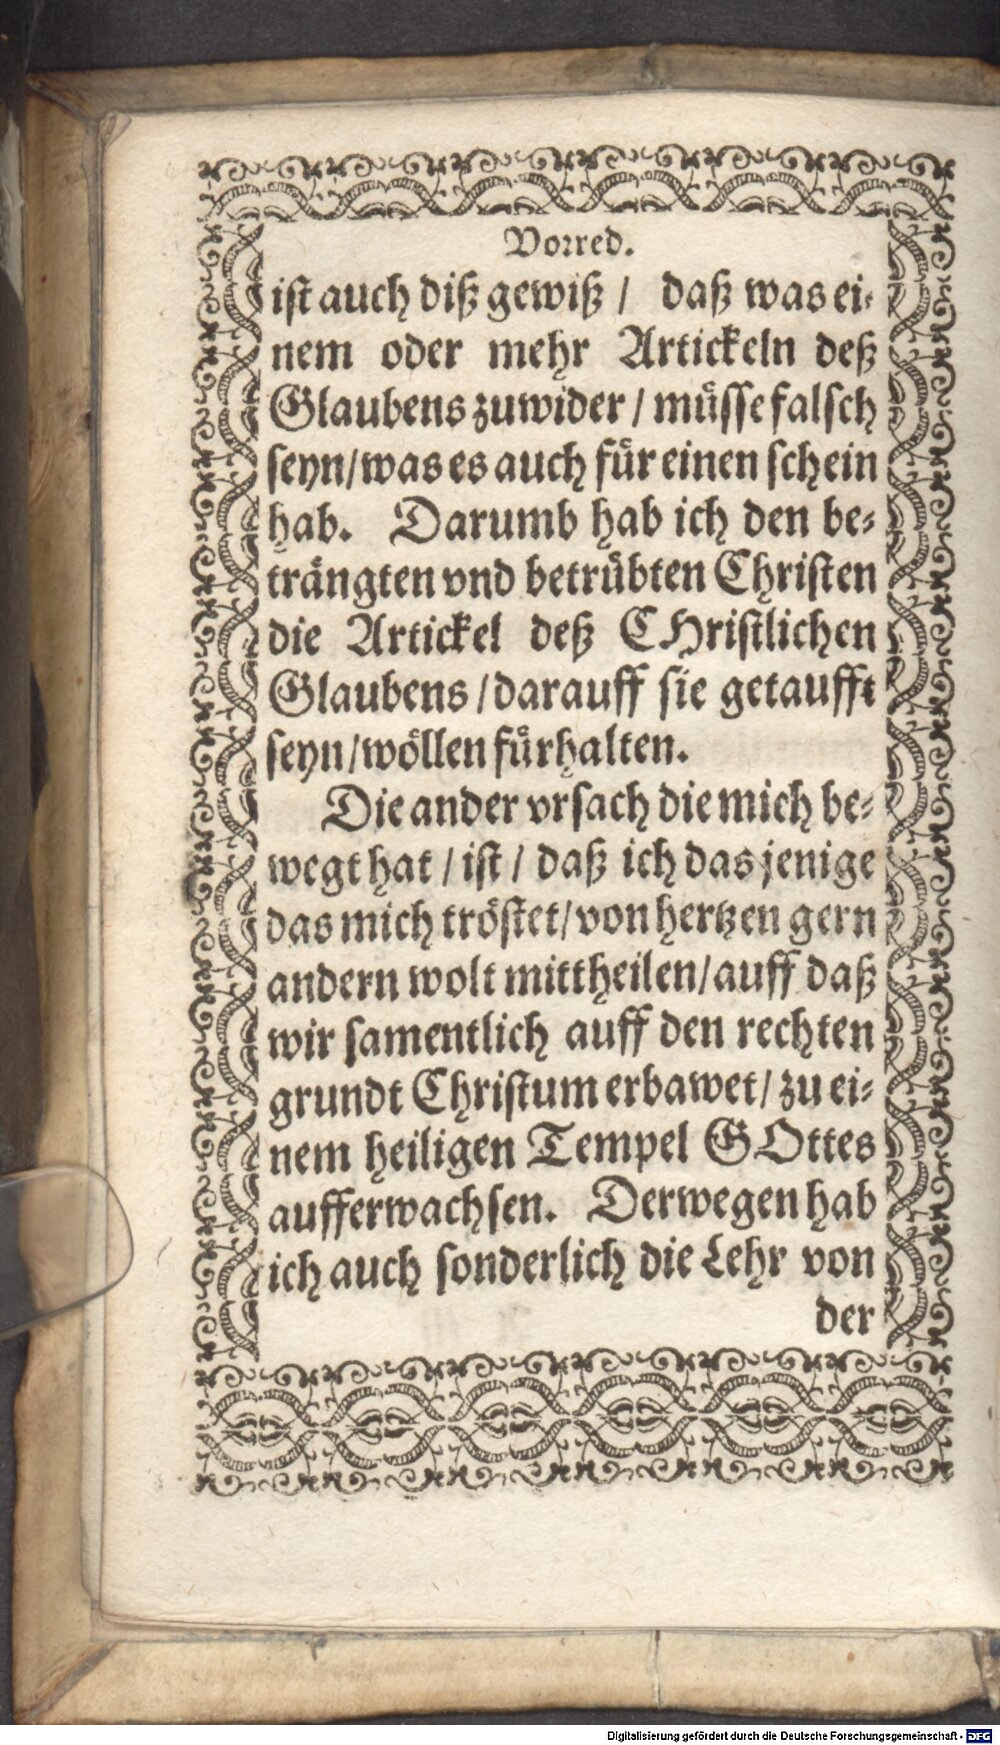 Vorred.
ist auch diß gewiß / daß was ei-
nem oder mehr Artickeln deß
Glaubens zuwider / müsse falsch
seyn / was es auch für einen schein
hab. Darumb hab ich den be-
trängten vnd betrübten Christen
die Artickel deß CHristlichen
Glaubens / darauff sie getaufft
seyn / wöllen fürhalten.
Die ander vrsach die mich be-
wegt hat / ist / daß ich das jenige
das mich tröstet / von hertzen gern
andern wolt mittheilen / auff daß
wir samentlich auff den rechten
grundt Christum erbawet / zu ei-
nem heiligen Tempel GOttes
aufferwachsen. Derwegen hab
ich auch sonderlich die Lehr von
der
Digitalisierung gefördert durch die Deutsche Forschungsgemeinschaft - DFG